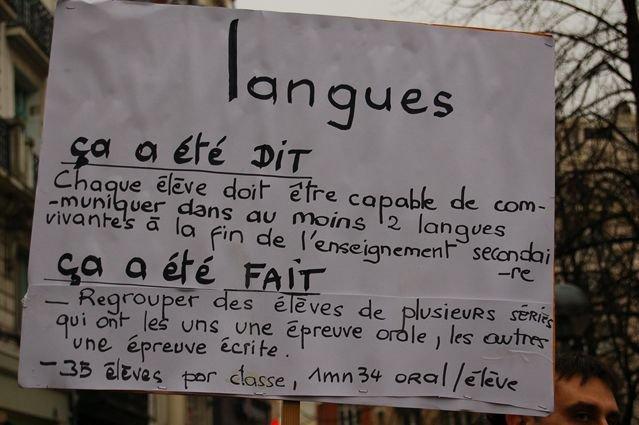 langues
ça a été DIT
Chaque élève doit être capable de com-
-muniquer dans au moins 2 langues
vivantes à la fin de l'enseignement secondai
-re
ça a été FAIT
- Regrouper des élèves de plusieurs séries
qui ont les uns une épreuve orale, les autres
une épreuve écrite.
- 35 élèves par classe, 1mn34 oral/élève